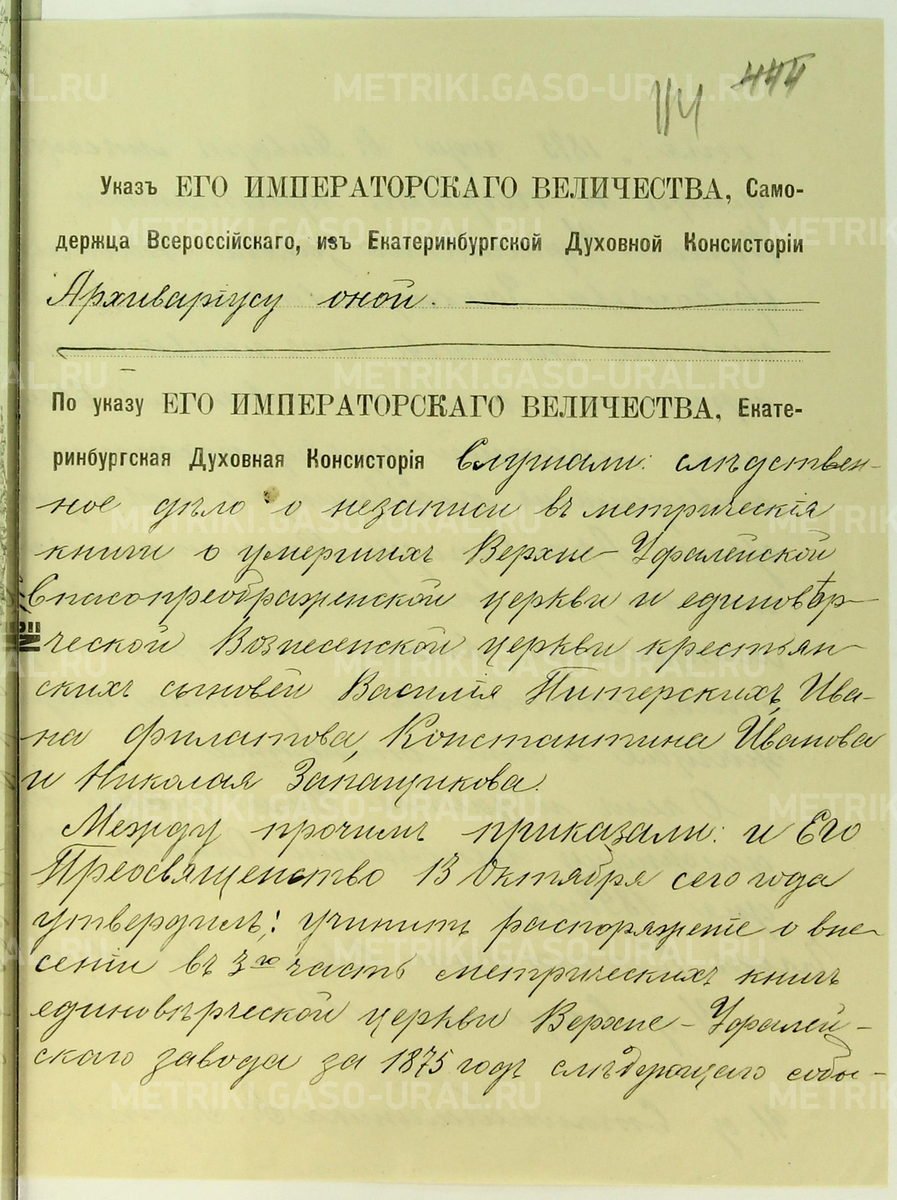 114 444
Указъ ЕГО ИМПЕРАТОРСКАГО ВЕЛИЧЕСТВА, Само-
держца Всероссійскаго, изъ Екатеринбургской Духовной Консисторіи
Архиваріусу оной.
По указу ЕГО ИМПЕРАТОРСКАГО ВЕЛИЧЕСТВА, Екате-
ринбургская Духовная Консисторія Слушали: слѣдствен-
ное дѣло о незаписи въ метрическія
книги о умершихъ Верхне-Уфалейской
Спасопреображенской церкви и единовѣр-
ческой Вознесенской церкви крестьян-
скихъ сыновей Василія Питерскихъ, Ива-
на Филатова, Константина Иванова
и Николая Запащикова.
Между прочимъ приказали: и Его
Преосвященство 13 Октября сего года
утвердилъ: учинить распоряженіе о вне-
сеніи въ 3ю часть метрическихъ книгъ
единовѣрческой церкви Верхне-Уфалей-
скаго завода за 1875 годъ слѣдующаго собы-
METRIKI.GASO-URAL.RU